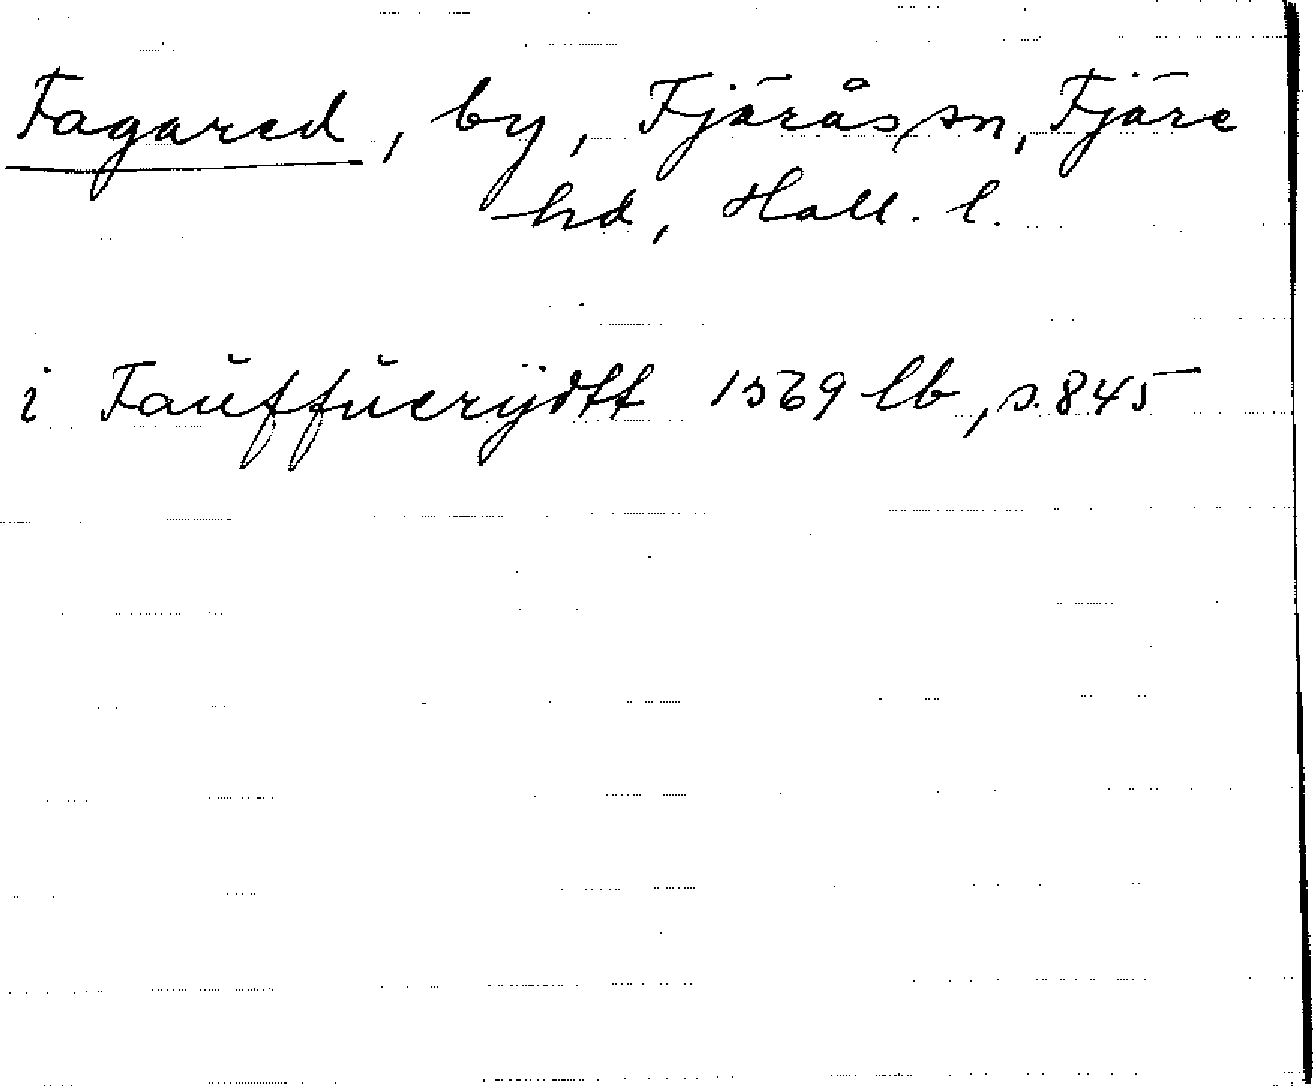 Fagared, by, Fjärås sn, Fjäre
hd, Hall. l.
i Faŭffŭerÿdtt 1569 lb, s. 845